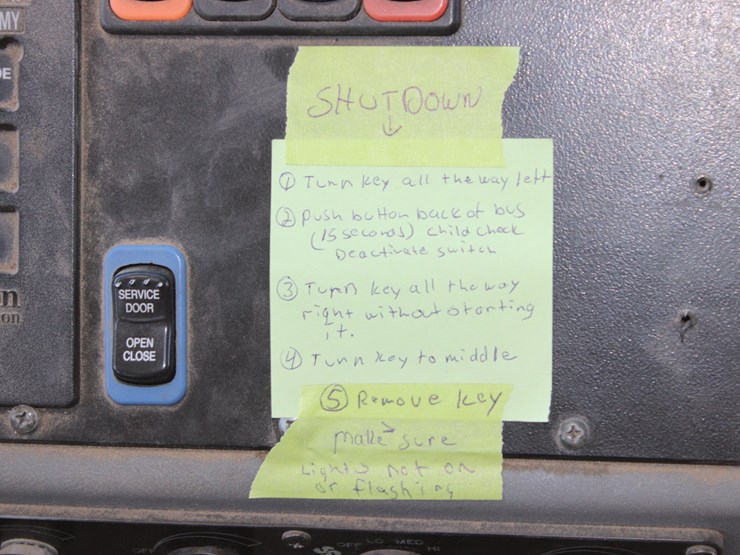 MY
E
SHUTDOWN
① Turn key all the way left
② push button back of bus
(15 seconds) child check
Deactivate switch
③ Turn key all the way
right without starting
it.
④ Turn key to middle
⑤ Remove key
make sure
Lights not on
or flashing
SERVICE
DOOR
OPEN
CLOSE
n
on
OFF LO MED HI